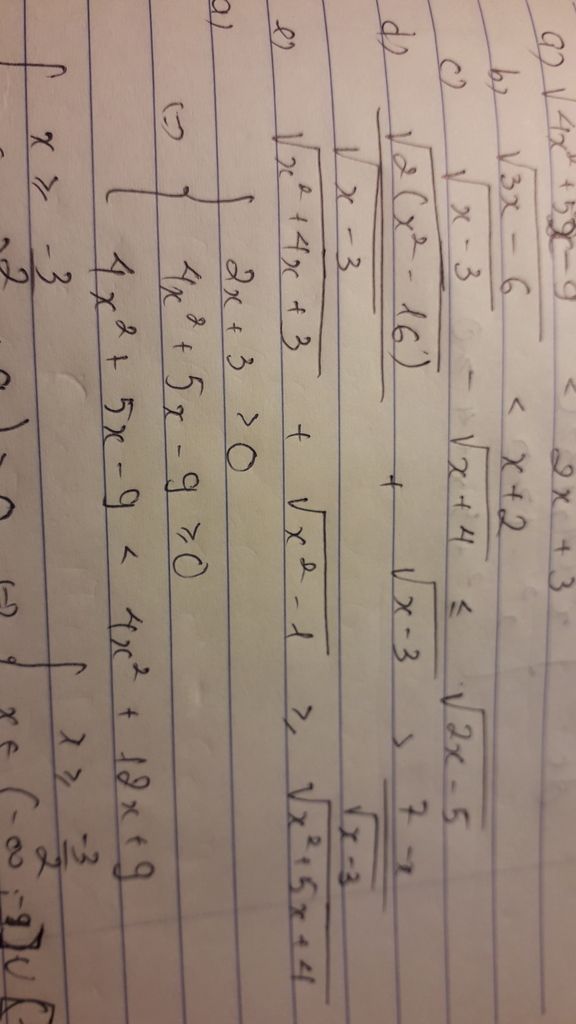 a) √(4x² + 5x - 9) < 2x + 3
b) √(3x - 6) < x + 2
c) √(x - 3) - √(x + 4) ≤ √(2x - 5)
d) √(2(x² - 16)) / √(x - 3) + √(x - 3) > (7 - x) / √(x - 3)
e) √(x² + 4x + 3) + √(x² - 1) ≥ √(x² + 5x + 4)
a) { 2x + 3 > 0
(=) { 4x² + 5x - 9 ≥ 0
{ 4x² + 5x - 9 < 4x² + 12x + 9
{ x ≥ -3/2 { x ≥ -3/2
) ≥ 0 (=) { x ∈ (-∞; -9] ∪ [